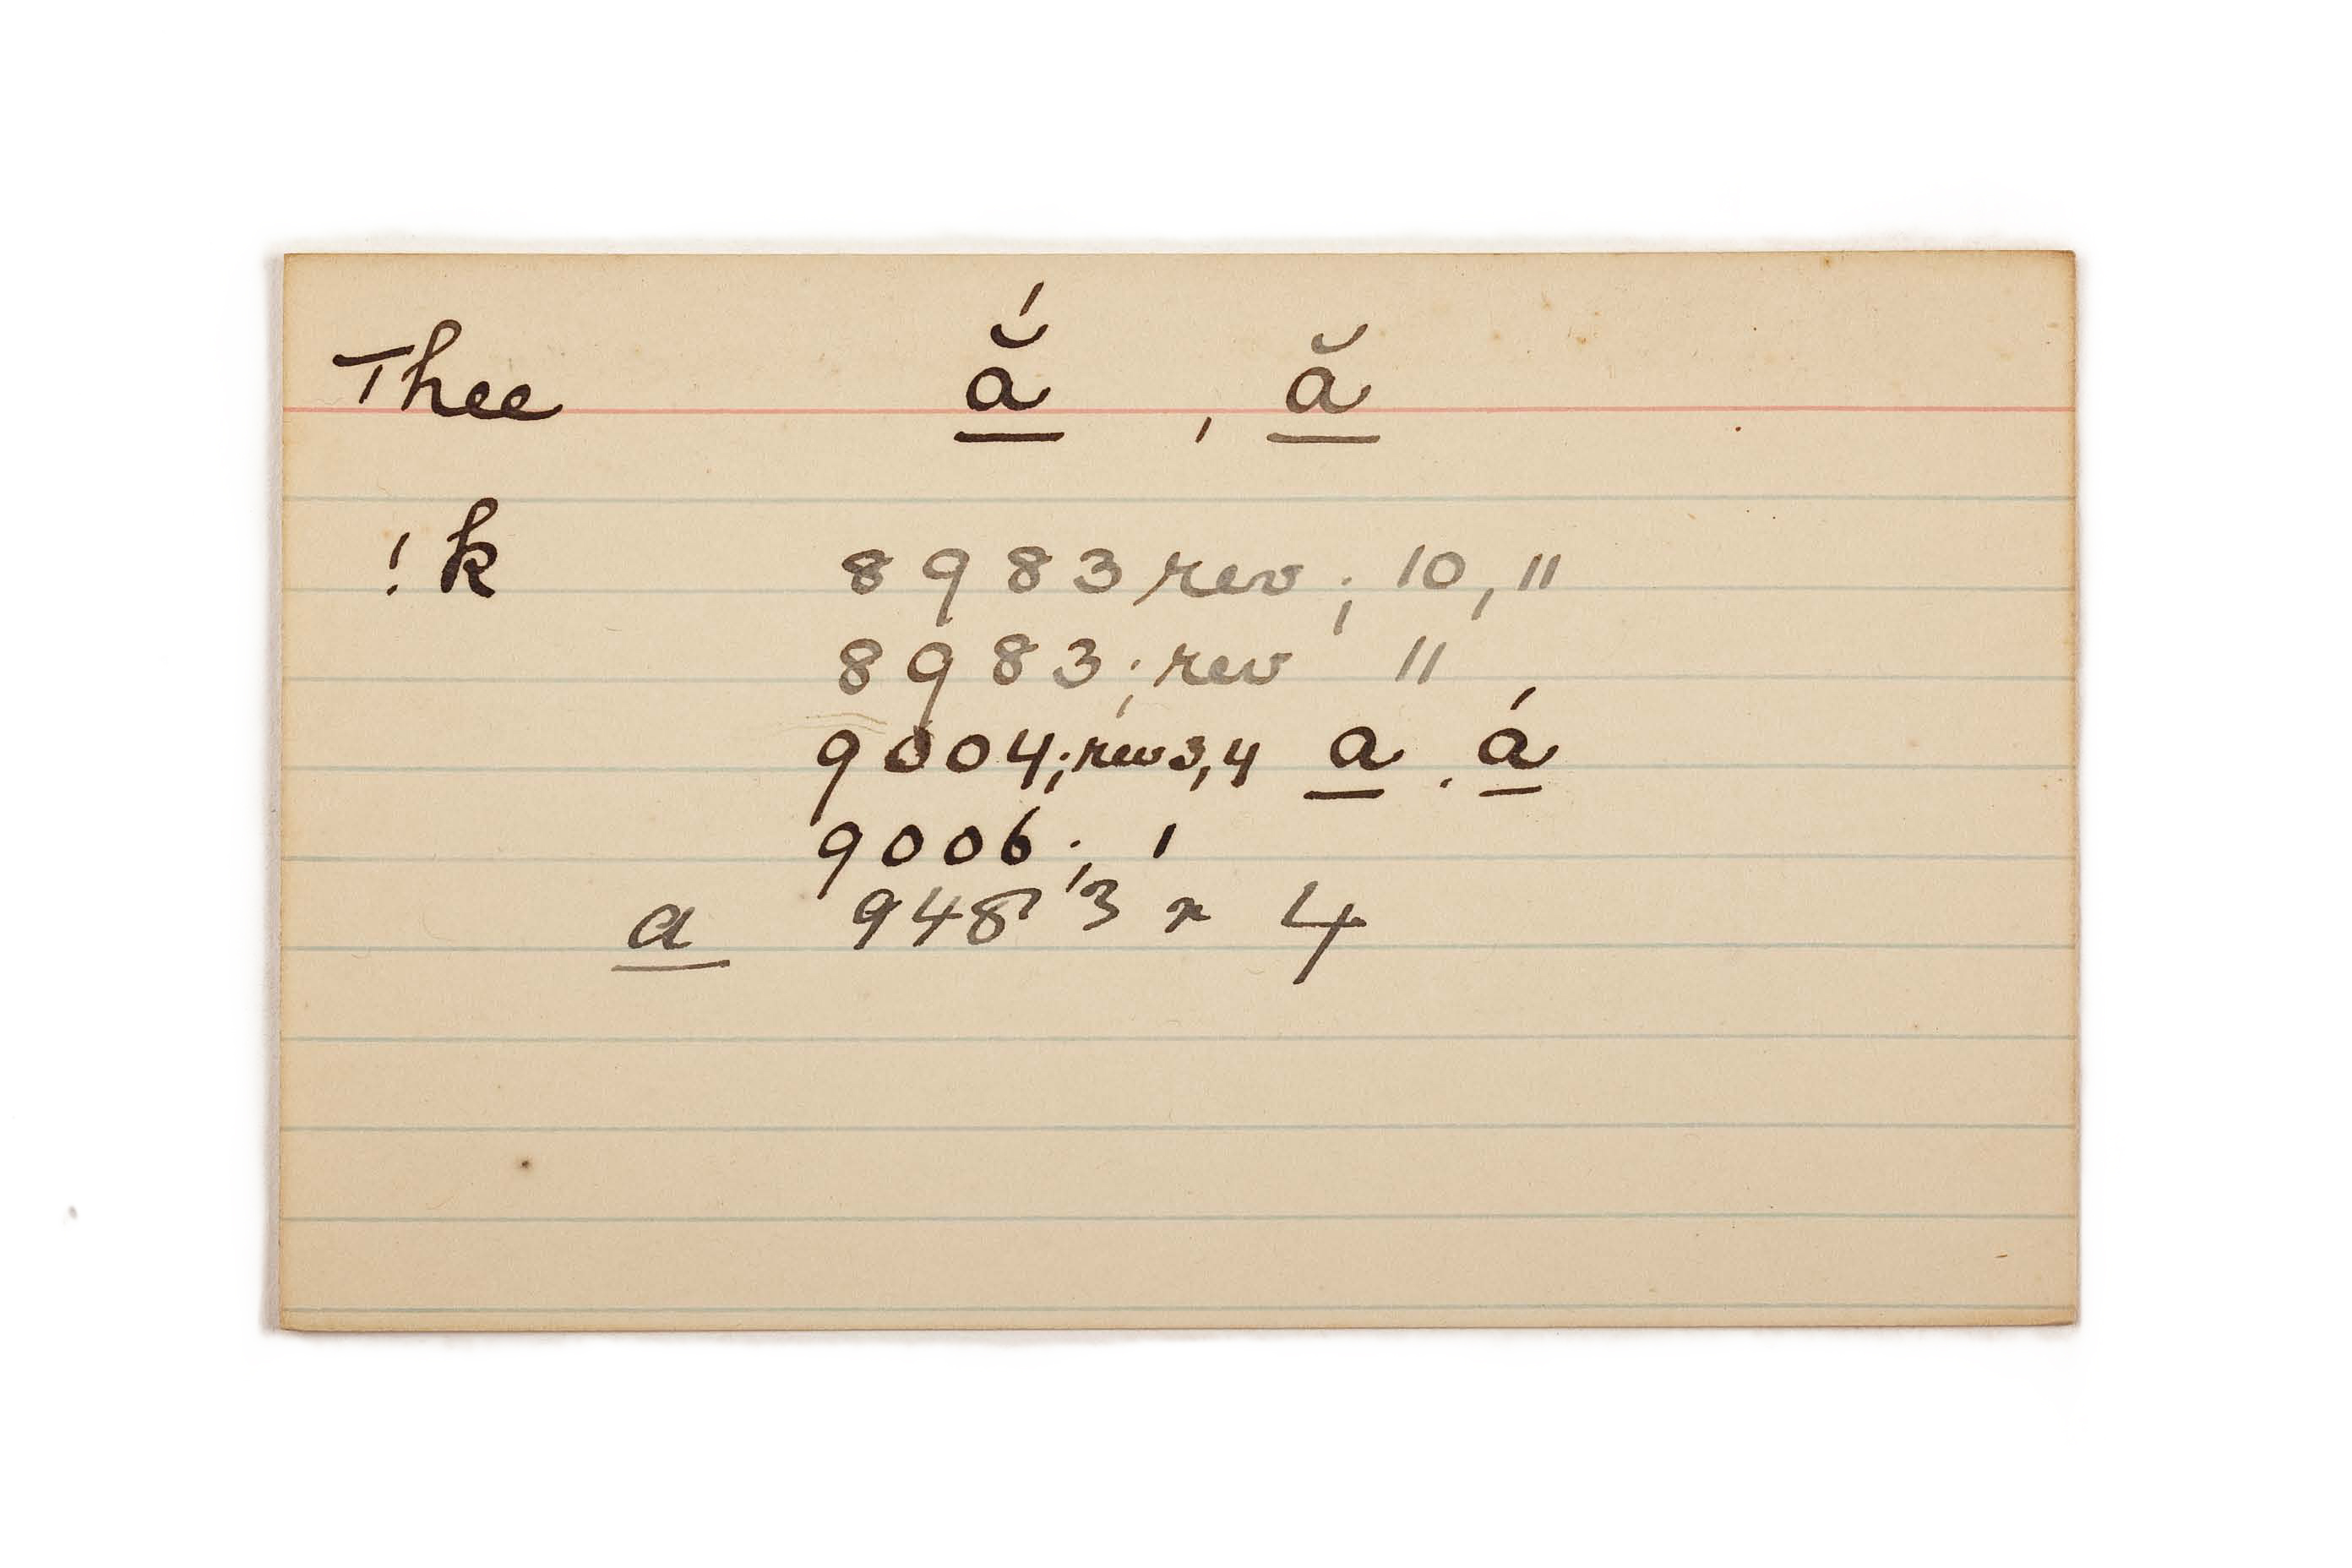 Thee ắ̲̮ , ă̲
!k 8983 rev ; 10, 11
8983 ; rev 11
9004; rev 3,4 a̲ . á̲
9006 ; 1
a̲ 9483 r 4